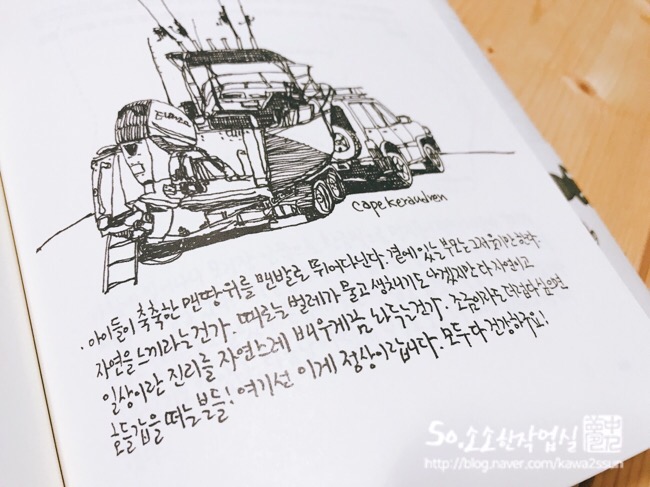 Cape Keraudren
·아이들이 축축한 맨땅위를 맨발로 뛰어다닌다. 곁에 있는 부모는 그저 웃기만 한다.
자연을 느끼라는건가. 때로는 벌레가 물고 생채기도 나겠지만 다 자연이고
일상이란 진리를 자연스레 배우게끔 놔두는건가. 조금이라도 더럽다 싶으면
호들갑을 떠는 분들! 여기선 이게 정상이랍니다. 모두 다 건강하구요!
So.소소한작업실
http://blog.naver.com/kawa2ssun